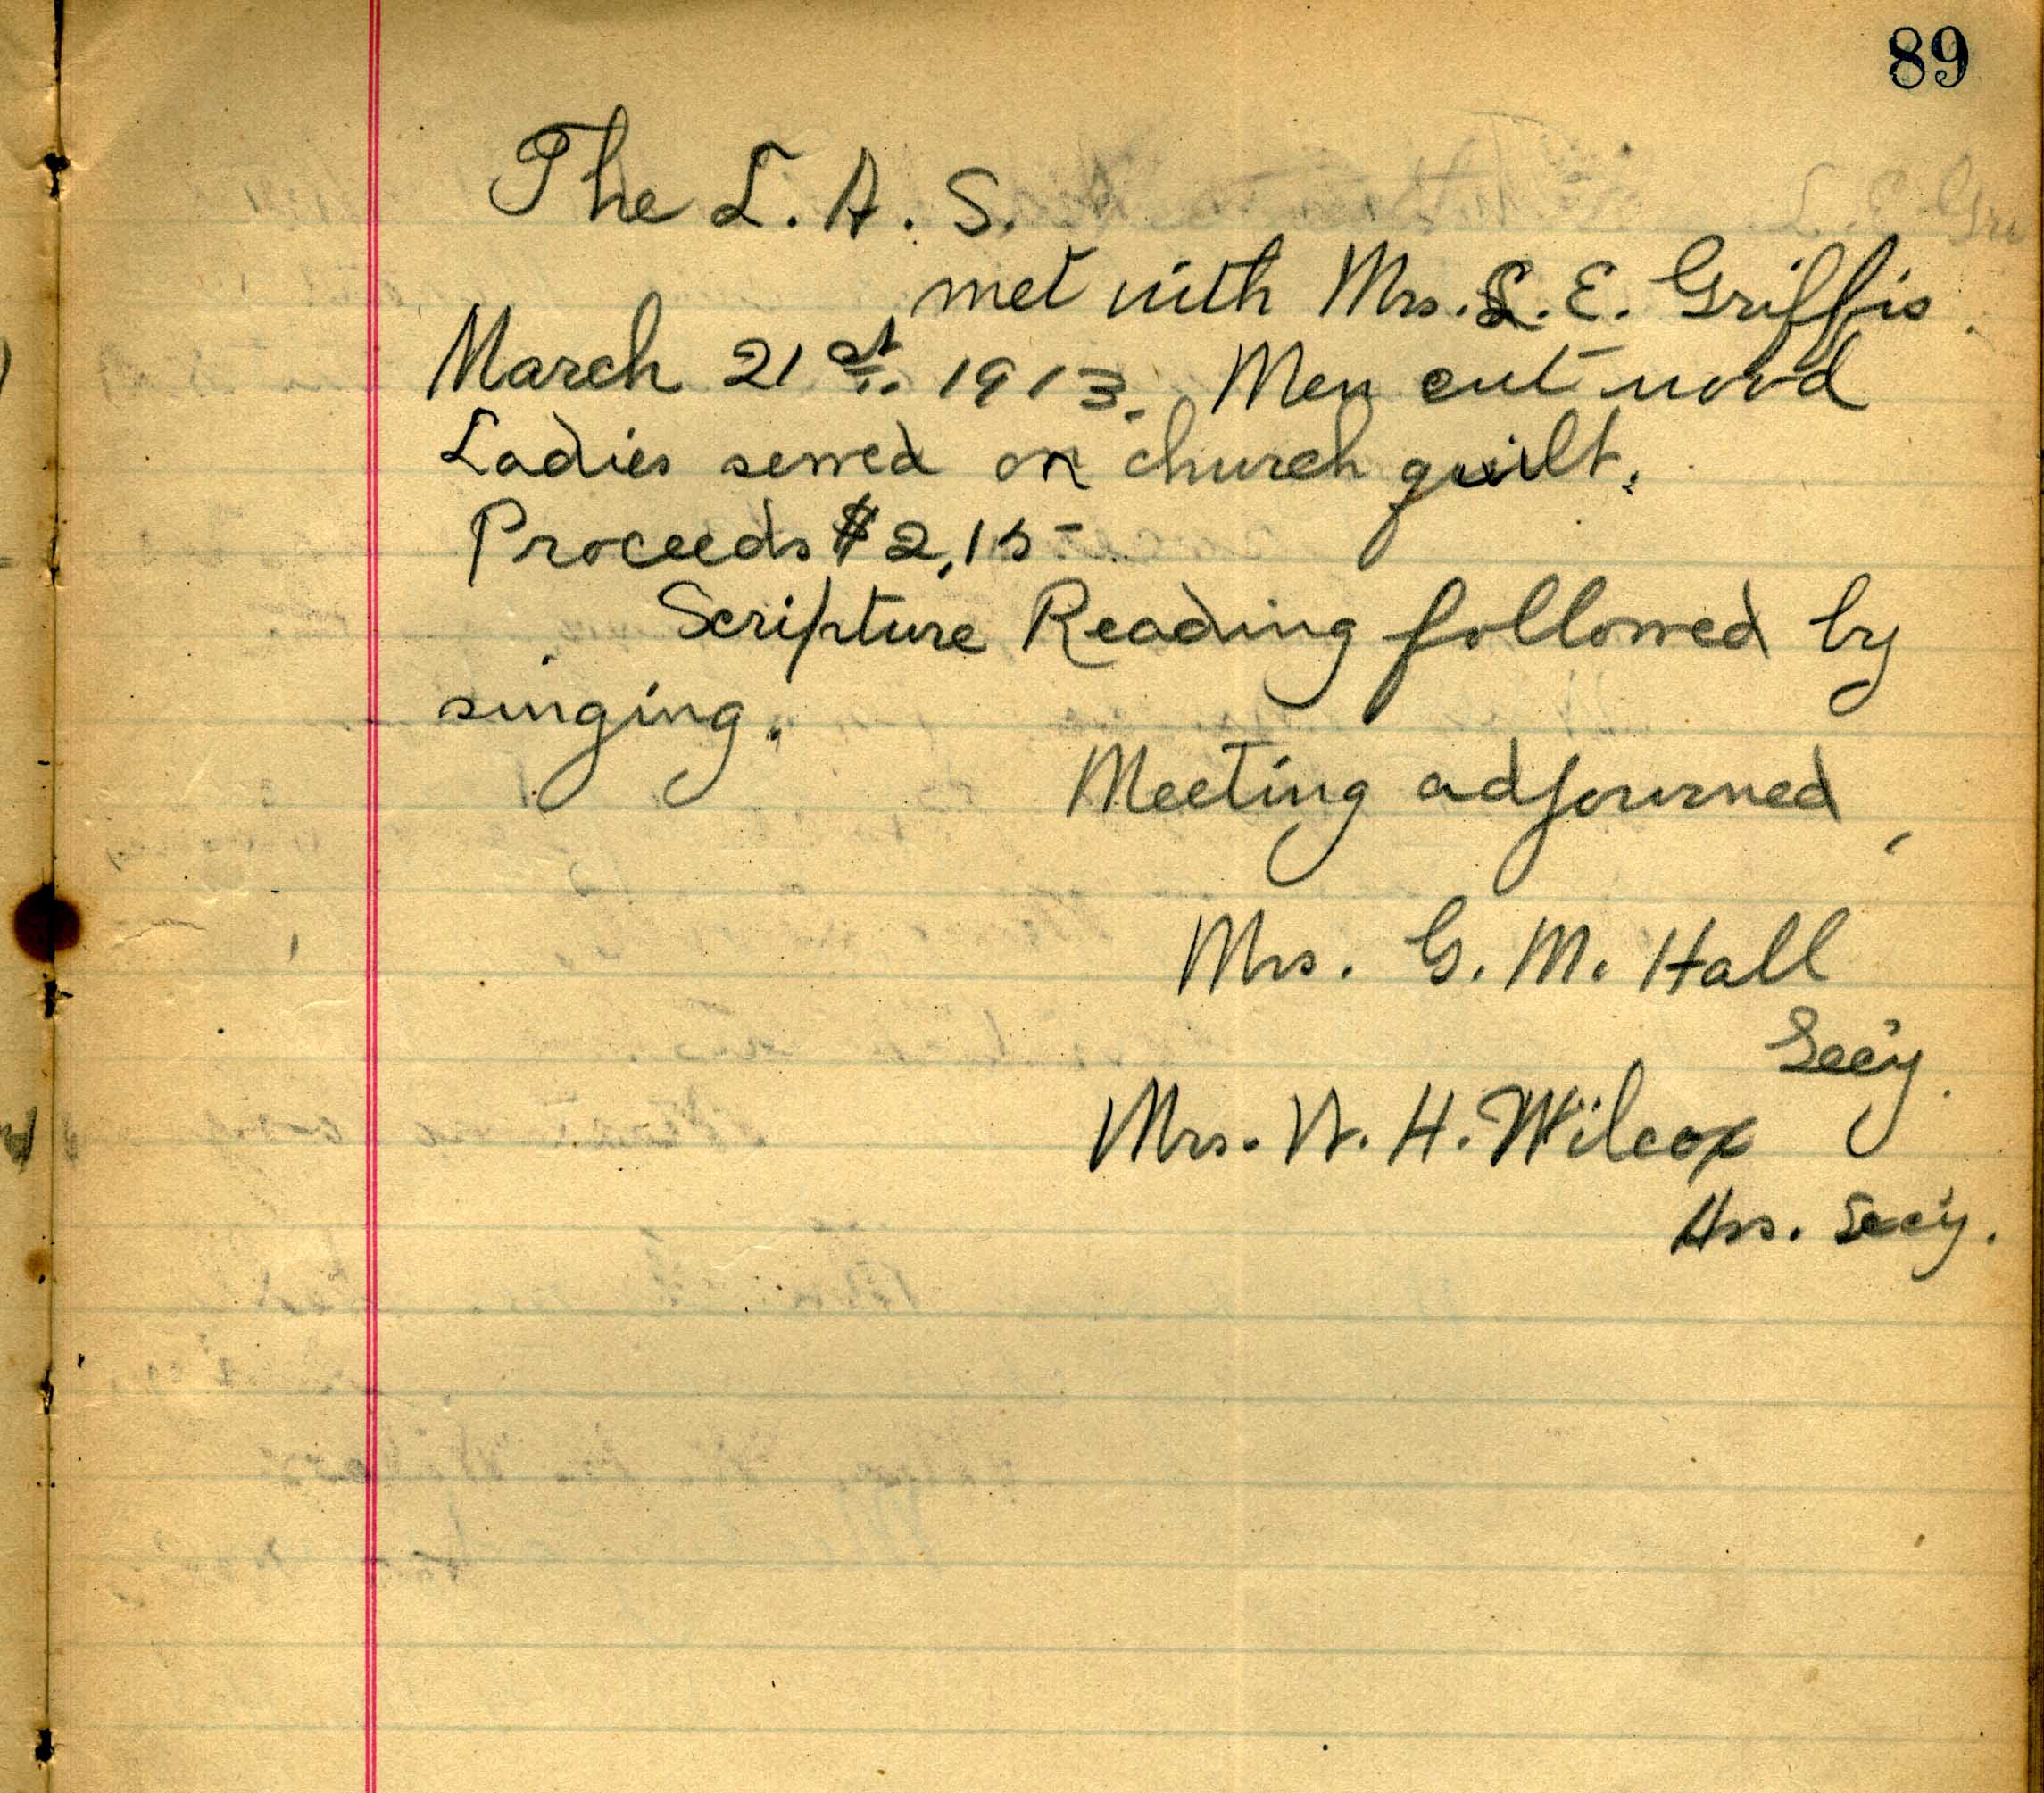 89
The L. A. S.
met with Mrs. L. E. Griffis.
March 21st. 1913. Men cut wood
Ladies sewed on church quilt.
Proceeds $2.15
Scripture Reading followed by
singing.
Meeting adjourned,
Mrs. G. M. Hall
Sec'y.
Mrs. W. H. Wilcox
Ass. Sec'y.